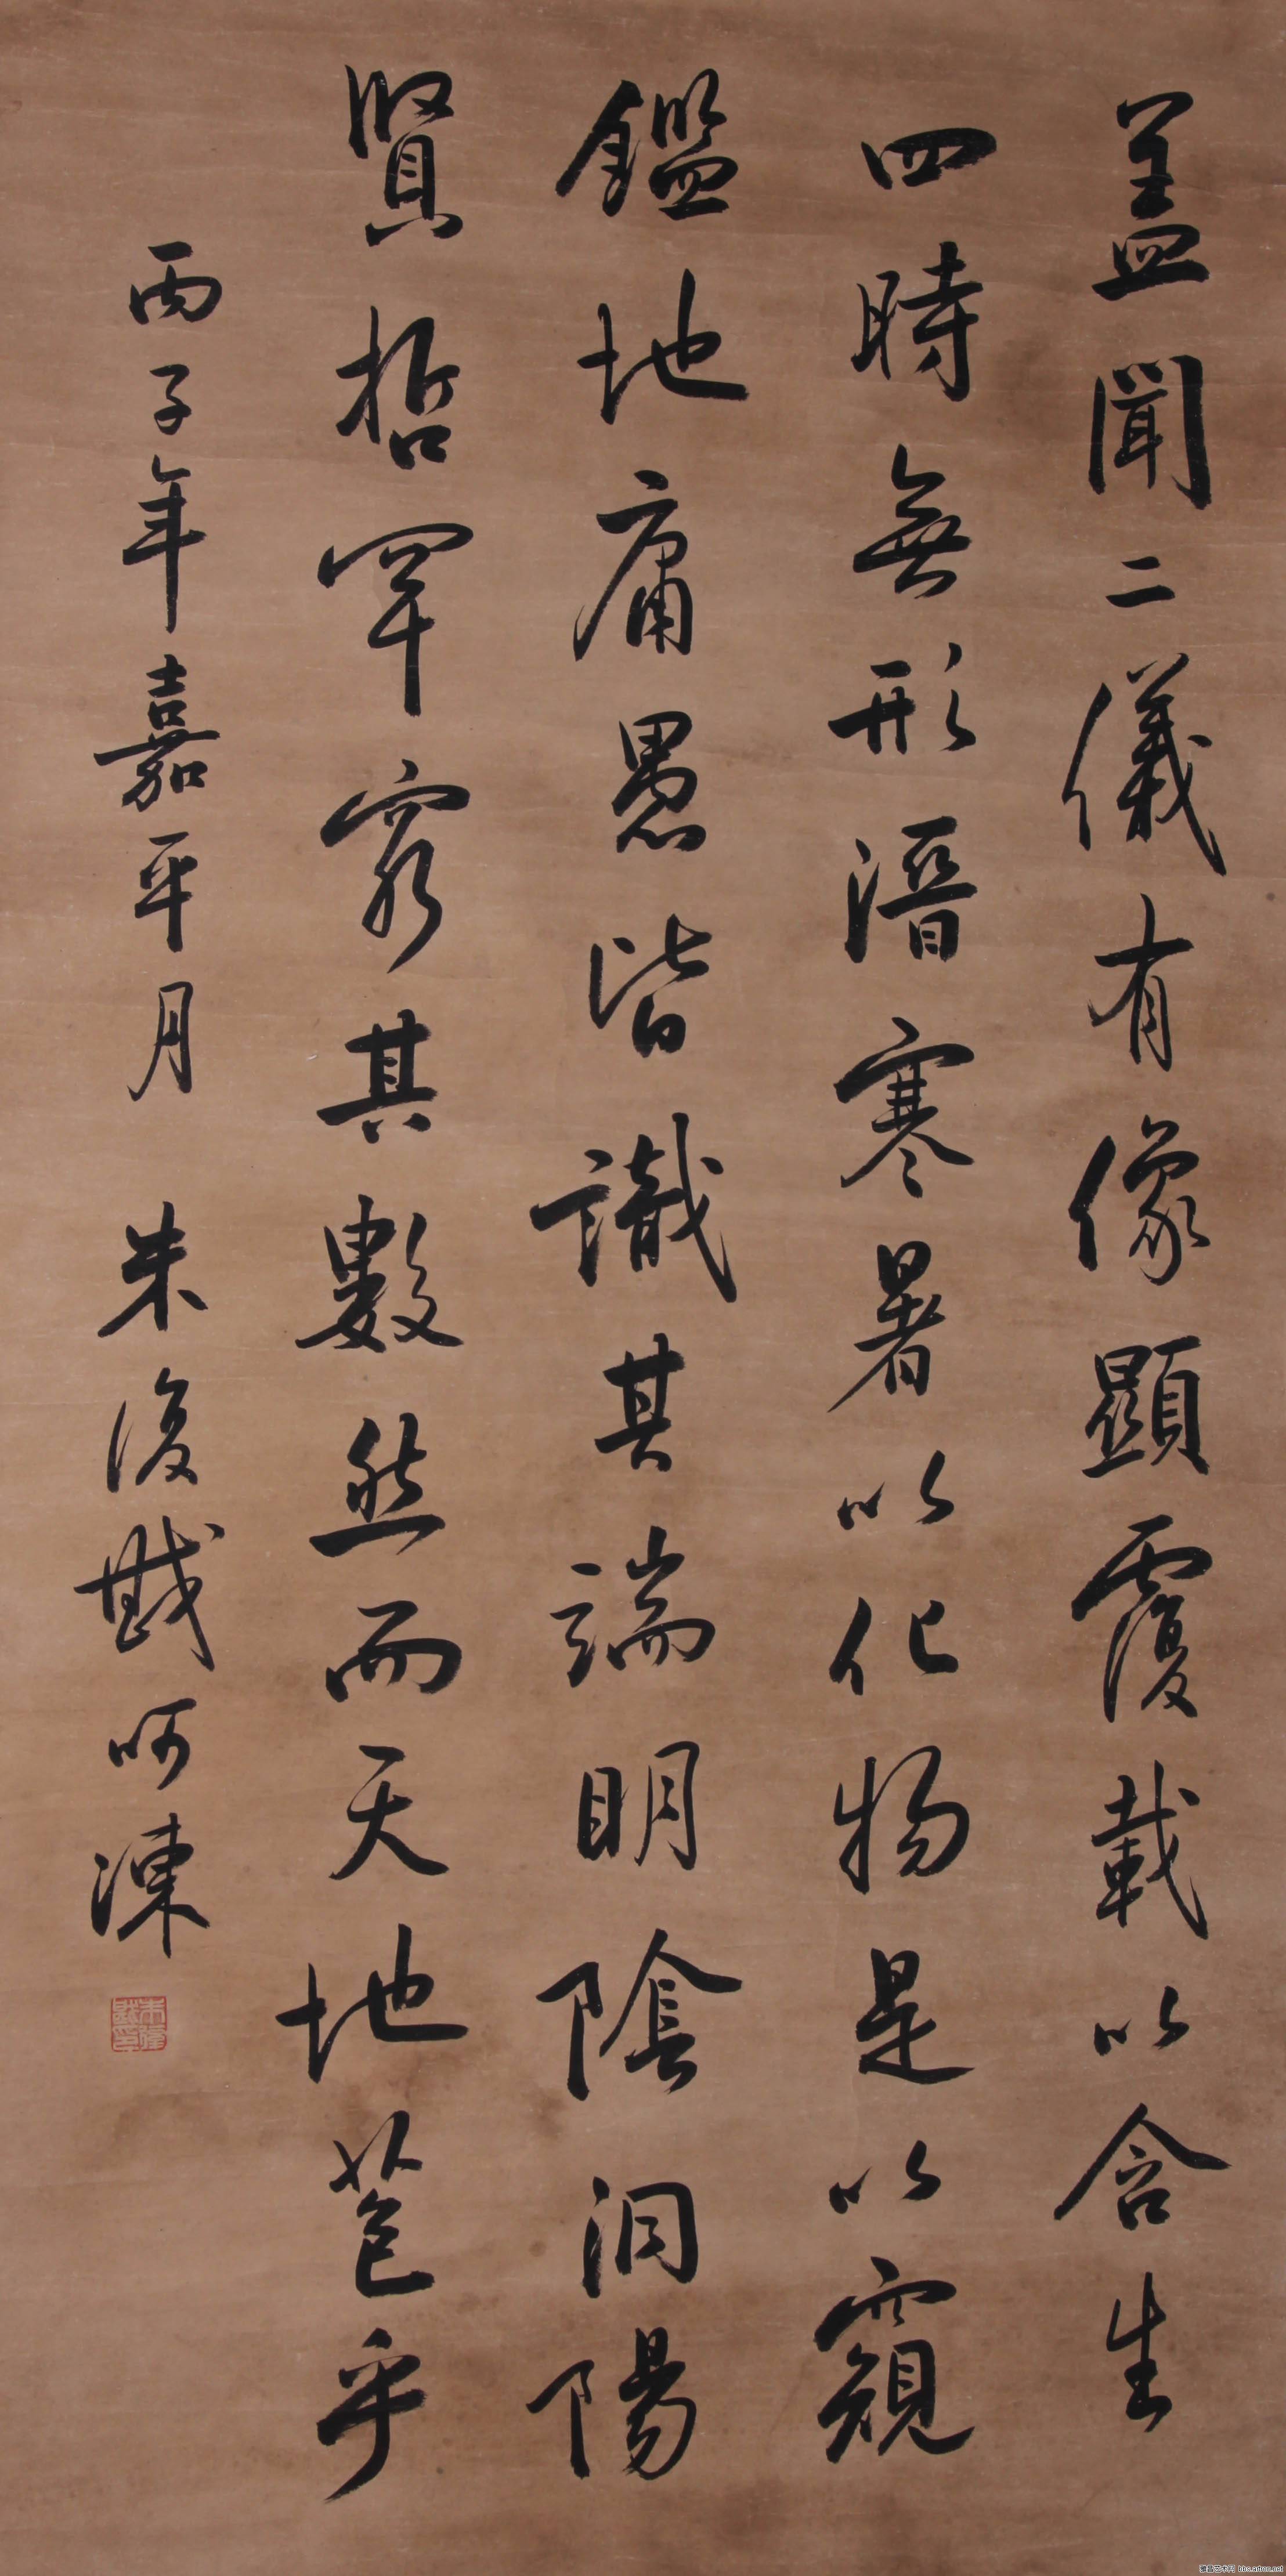 盖聞二儀有像顯覆載以含生
四時無形潛寒暑以化物是以窺
鑑地庸愚皆識其端明陰洞陽
賢哲罕窮其數然而天地苞乎
丙子年嘉平月 朱復戡呵凍
朱復戡印
bbs.artron.net